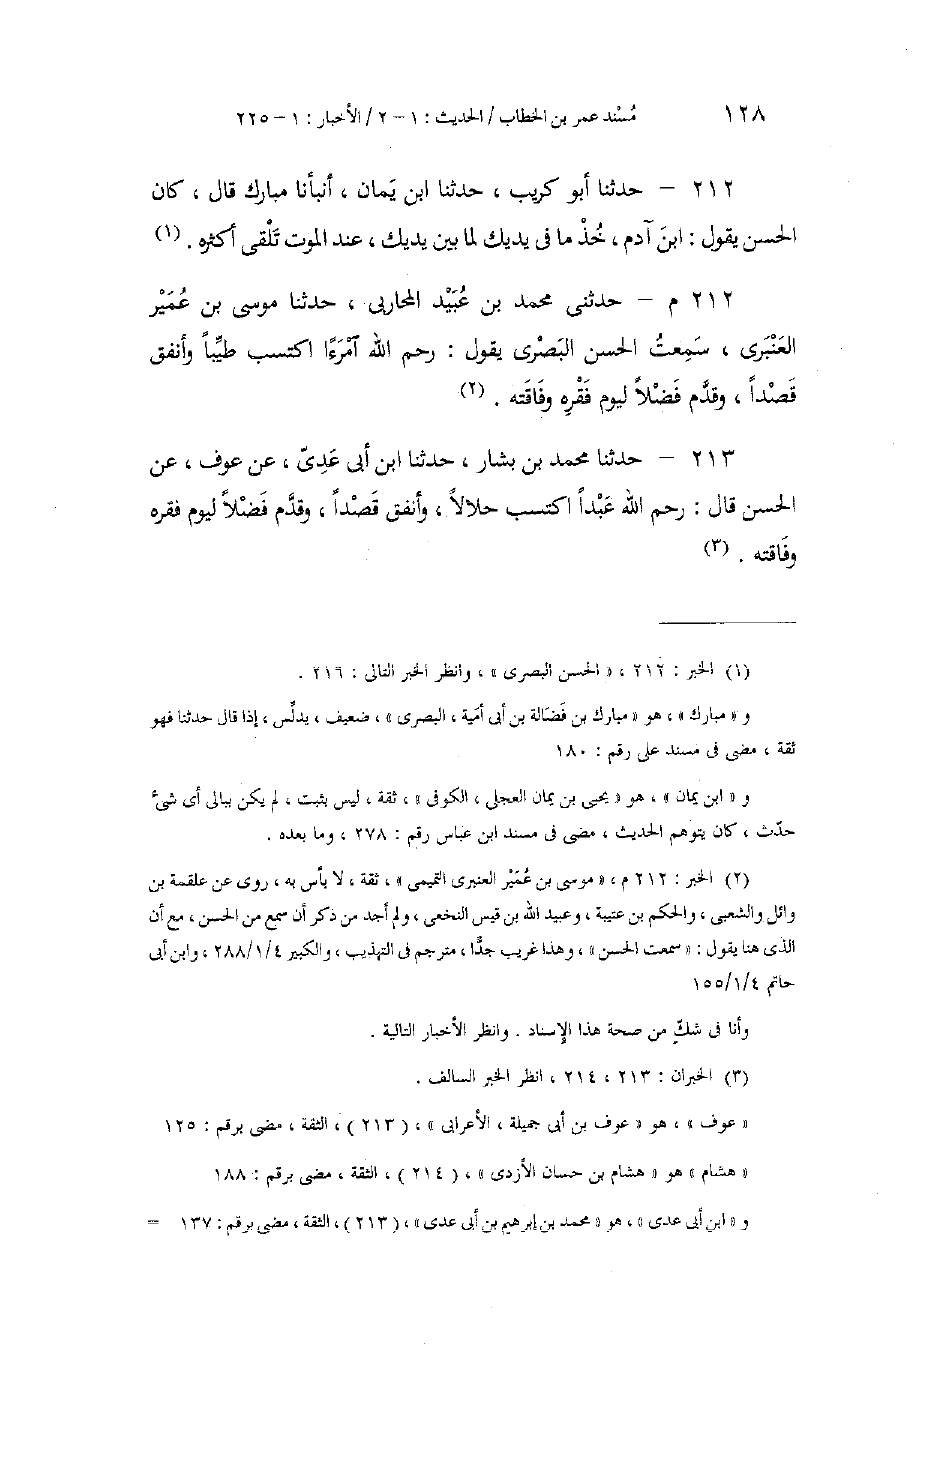 ١٢٨ مُسْند عمر بن الخطاب / الحديث : ١ – ٢ / الأخبار : ١ – ٢٢٥
٢١٢ – حدثنا أبو كريب ، حدثنا ابن يَمان ، أنبأنا مبارك قال ، كان
الحسن يقول : ابنَ آدم ، خُذْ ما فى يديك لما بين يديك ، عند الموت تَلْقى أكثره . (١)
٢١٢ م – حدثنى محمد بن عُبَيْد المحاربى ، حدثنا موسى بن عُمَيْر
العَنْبَرى ، سَمِعتُ الحسن البَصْرى يقول : رحم الله آمْرَءًا اكتسب طيِّباً وأنفق
قَصْداً ، وقدَّم فَضْلاً ليوم فَقْرِه وفَاقَته . (٢)
٢١٣ – حدثنا محمد بن بشار ، حدثنا ابن أبى عَدِىّ ، عن عوف ، عن
الحسن قال : رحم الله عَبْداً اكتسب حلالاً ، وأنفق قَصْداً ، وقدَّم فَضْلاً ليوم فقره
وفَاقته . (٣)
(١) الخبر : ٢١٢ ، « الحسن البصرى » ، وانظر الخبر التالى : ٢١٦ .
و « مبارك » ، هو « مبارك بن فَضَالة بن أبى أمَية ، البصرى » ، ضعيف ، يدلِّس ، إذا قال حدثنا فهو
ثقة ، مضى فى مسند على رقم : ١٨٠
و « ابن يمان » ، هو « يحيى بن يمان العجلى ، الكوفى » ، ثقة ، ليس بثبت ، لم يكن يبالى أى شئ
حدّث ، كان يتوهم الحديث ، مضى فى مسند ابن عباس رقم : ٢٧٨ ، وما بعده .
(٢) الخبر : ٢١٢ م ، « موسى بن عُمَيْر العنبرى التميمى » ، ثقة ، لا بأس به ، روى عن علقمة بن
وائل والشعبى ، والحكم بن عتيبة ، وعبيد الله بن قيس النخعى ، ولم أجد من ذكر أن سمع من الحسن ، مع أن
الذى هنا يقول : « سمعت الحسن » ، وهذا غريب جدًّا ، مترجم فى التهذيب ، والكبير ٢٨٨/١/٤ ، وابن أبى
حاتم ١٥٥/١/٤
وأنا فى شكٍّ من صحة هذا الإسناد . وانظر الأخبار التالية .
(٣) الخبران : ٢١٣ ، ٢١٤ ، انظر الخبر السالف .
« عوف » ، هو « عوف بن أبى جميلة ، الأعرابى » ، ( ٢١٣ ) ، الثقة ، مضى برقم : ١٢٥
« هشام » هو « هشام بن حسان الأزدى » ، ( ٢١٤ ) ، الثقة ، مضى برقم : ١٨٨
و « ابن أبى عدى » ، هو « محمد بن إبرهيم بن أبى عدى » ، ( ٢١٣ ) ، الثقة ، مضى برقم : ١٣٧ =